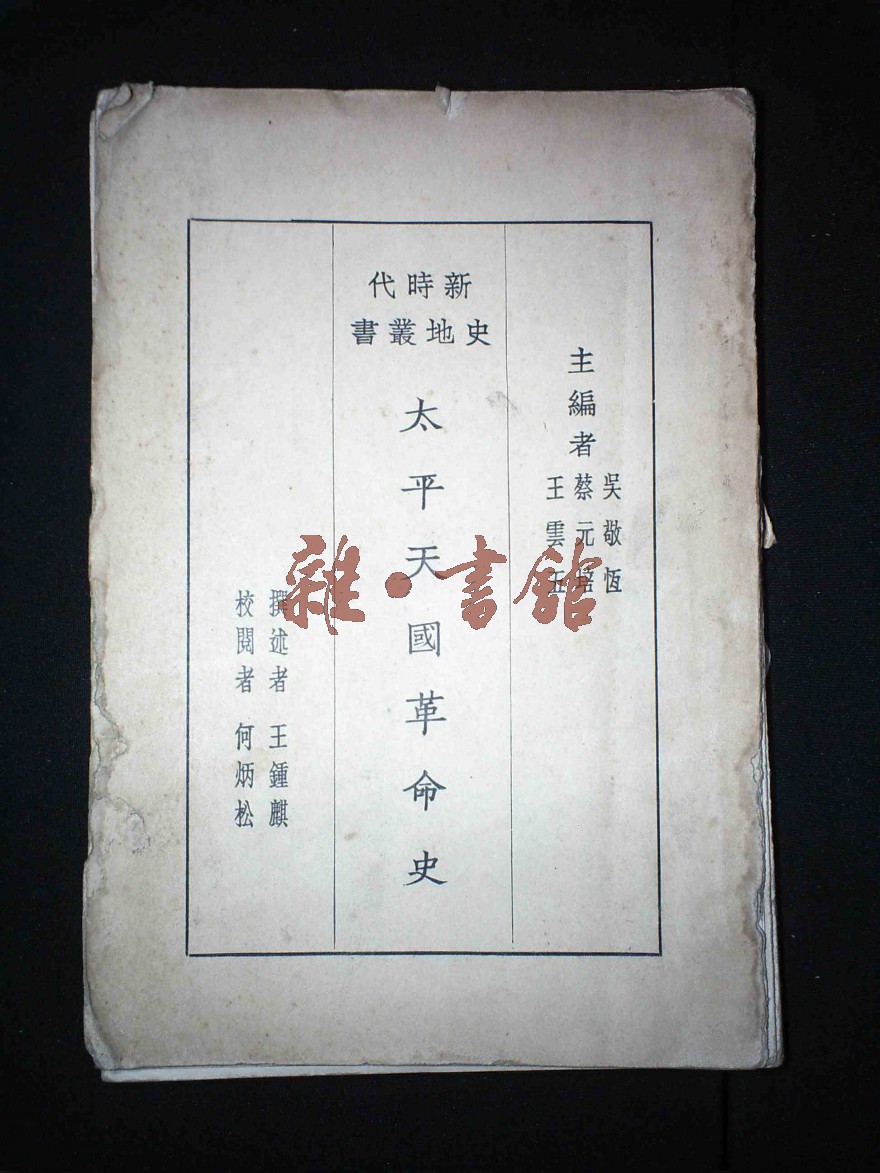 主編者
吳敬恆
蔡元培
王雲五
新時代
史地叢書
太平天國革命史
撰述者 王鍾麒
校閱者 何炳松
雜·書館